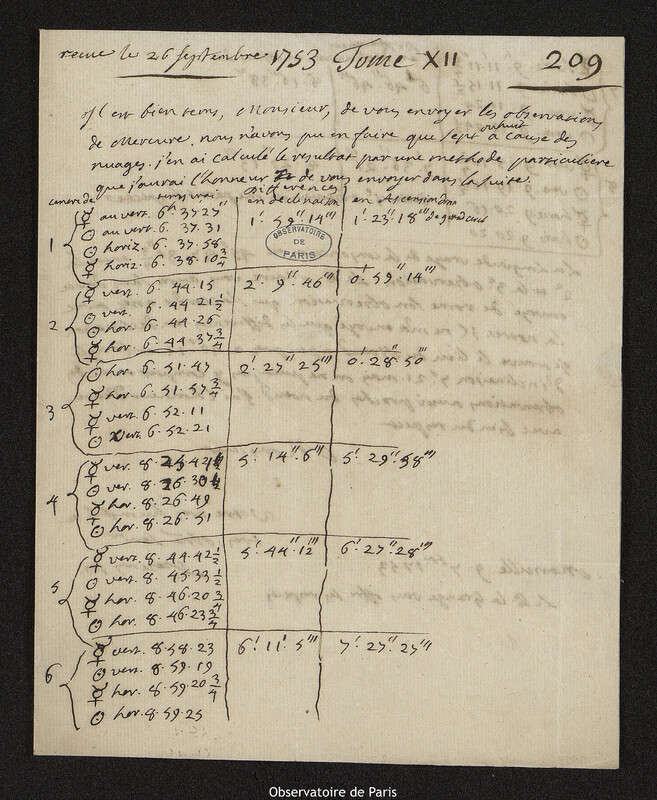 recue le 26 Septembre 1753 Tome XII 209
Il est bien tems, Monsieur, de vous envoyer les observations
de Mercure. nous n'avons pu en faire que sept ou huit à cause des
nuages. j'en ai calculé le resultat par une methode particuliere
que j'aurai l'honneur de vous envoyer dans la suite.
centre de tems vrai Differences
en declinaison en Ascension droite
1 ☿ au vert. 6h 37 27" 1' 59" 14''' 1' 23" 18''' de grand cercle
☉ au vert. 6. 37. 31
☉ horiz. 6. 37. 58
☿ horiz. 6. 38. 10 3/4
OBSERVATOIRE
DE
PARIS
2 ☿ vert. 6. 44. 15 2' 9" 46''' 0' 59" 14'''
☉ vert. 6. 44. 21 1/2
☉ hor. 6. 44. 26
☿ hor. 6. 44 37 3/4
3 ☉ hor. 6. 51. 47 2' 27" 25''' 0' 28" 50'''
☿ hor. 6. 51. 57 3/4
☿ vert. 6. 52. 11
☉ vert. 6. 52. 21
4 ☿ ver. 8. 5' 14" 6''' 5' 29" 58'''
☉ ver. 8.
☿ hor. 8. 26. 49
☉ hor. 8. 26. 51
5 ☿ vert. 8. 44. 42 1/2 5' 44" 12''' 6' 27" 28'''
☉ vert. 8. 45. 33 1/2
☿ hor. 8. 46. 20 3/4
☉ hor. 8. 46. 23 3/4
6 ☿ vert. 8. 58. 23 6' 11' 5''' 7' 27" 27'''
☉ vert. 8. 59. 19
☿ hor. 8. 59. 20 3/4
☉ hor. 8. 59. 25
Observatoire de Paris